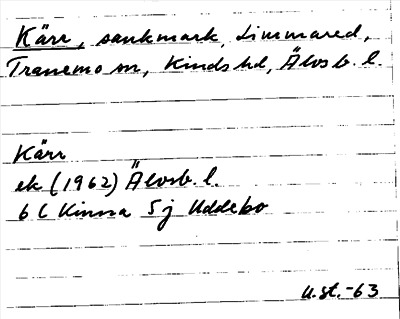 Kärr, sankmark, Limmared,
Tranemo sn, Kinds hd, Älvsb. l.
Kärr
ek (1962) Älvsb. l.
6 C Kinna 5j Uddebo
u.st.-63